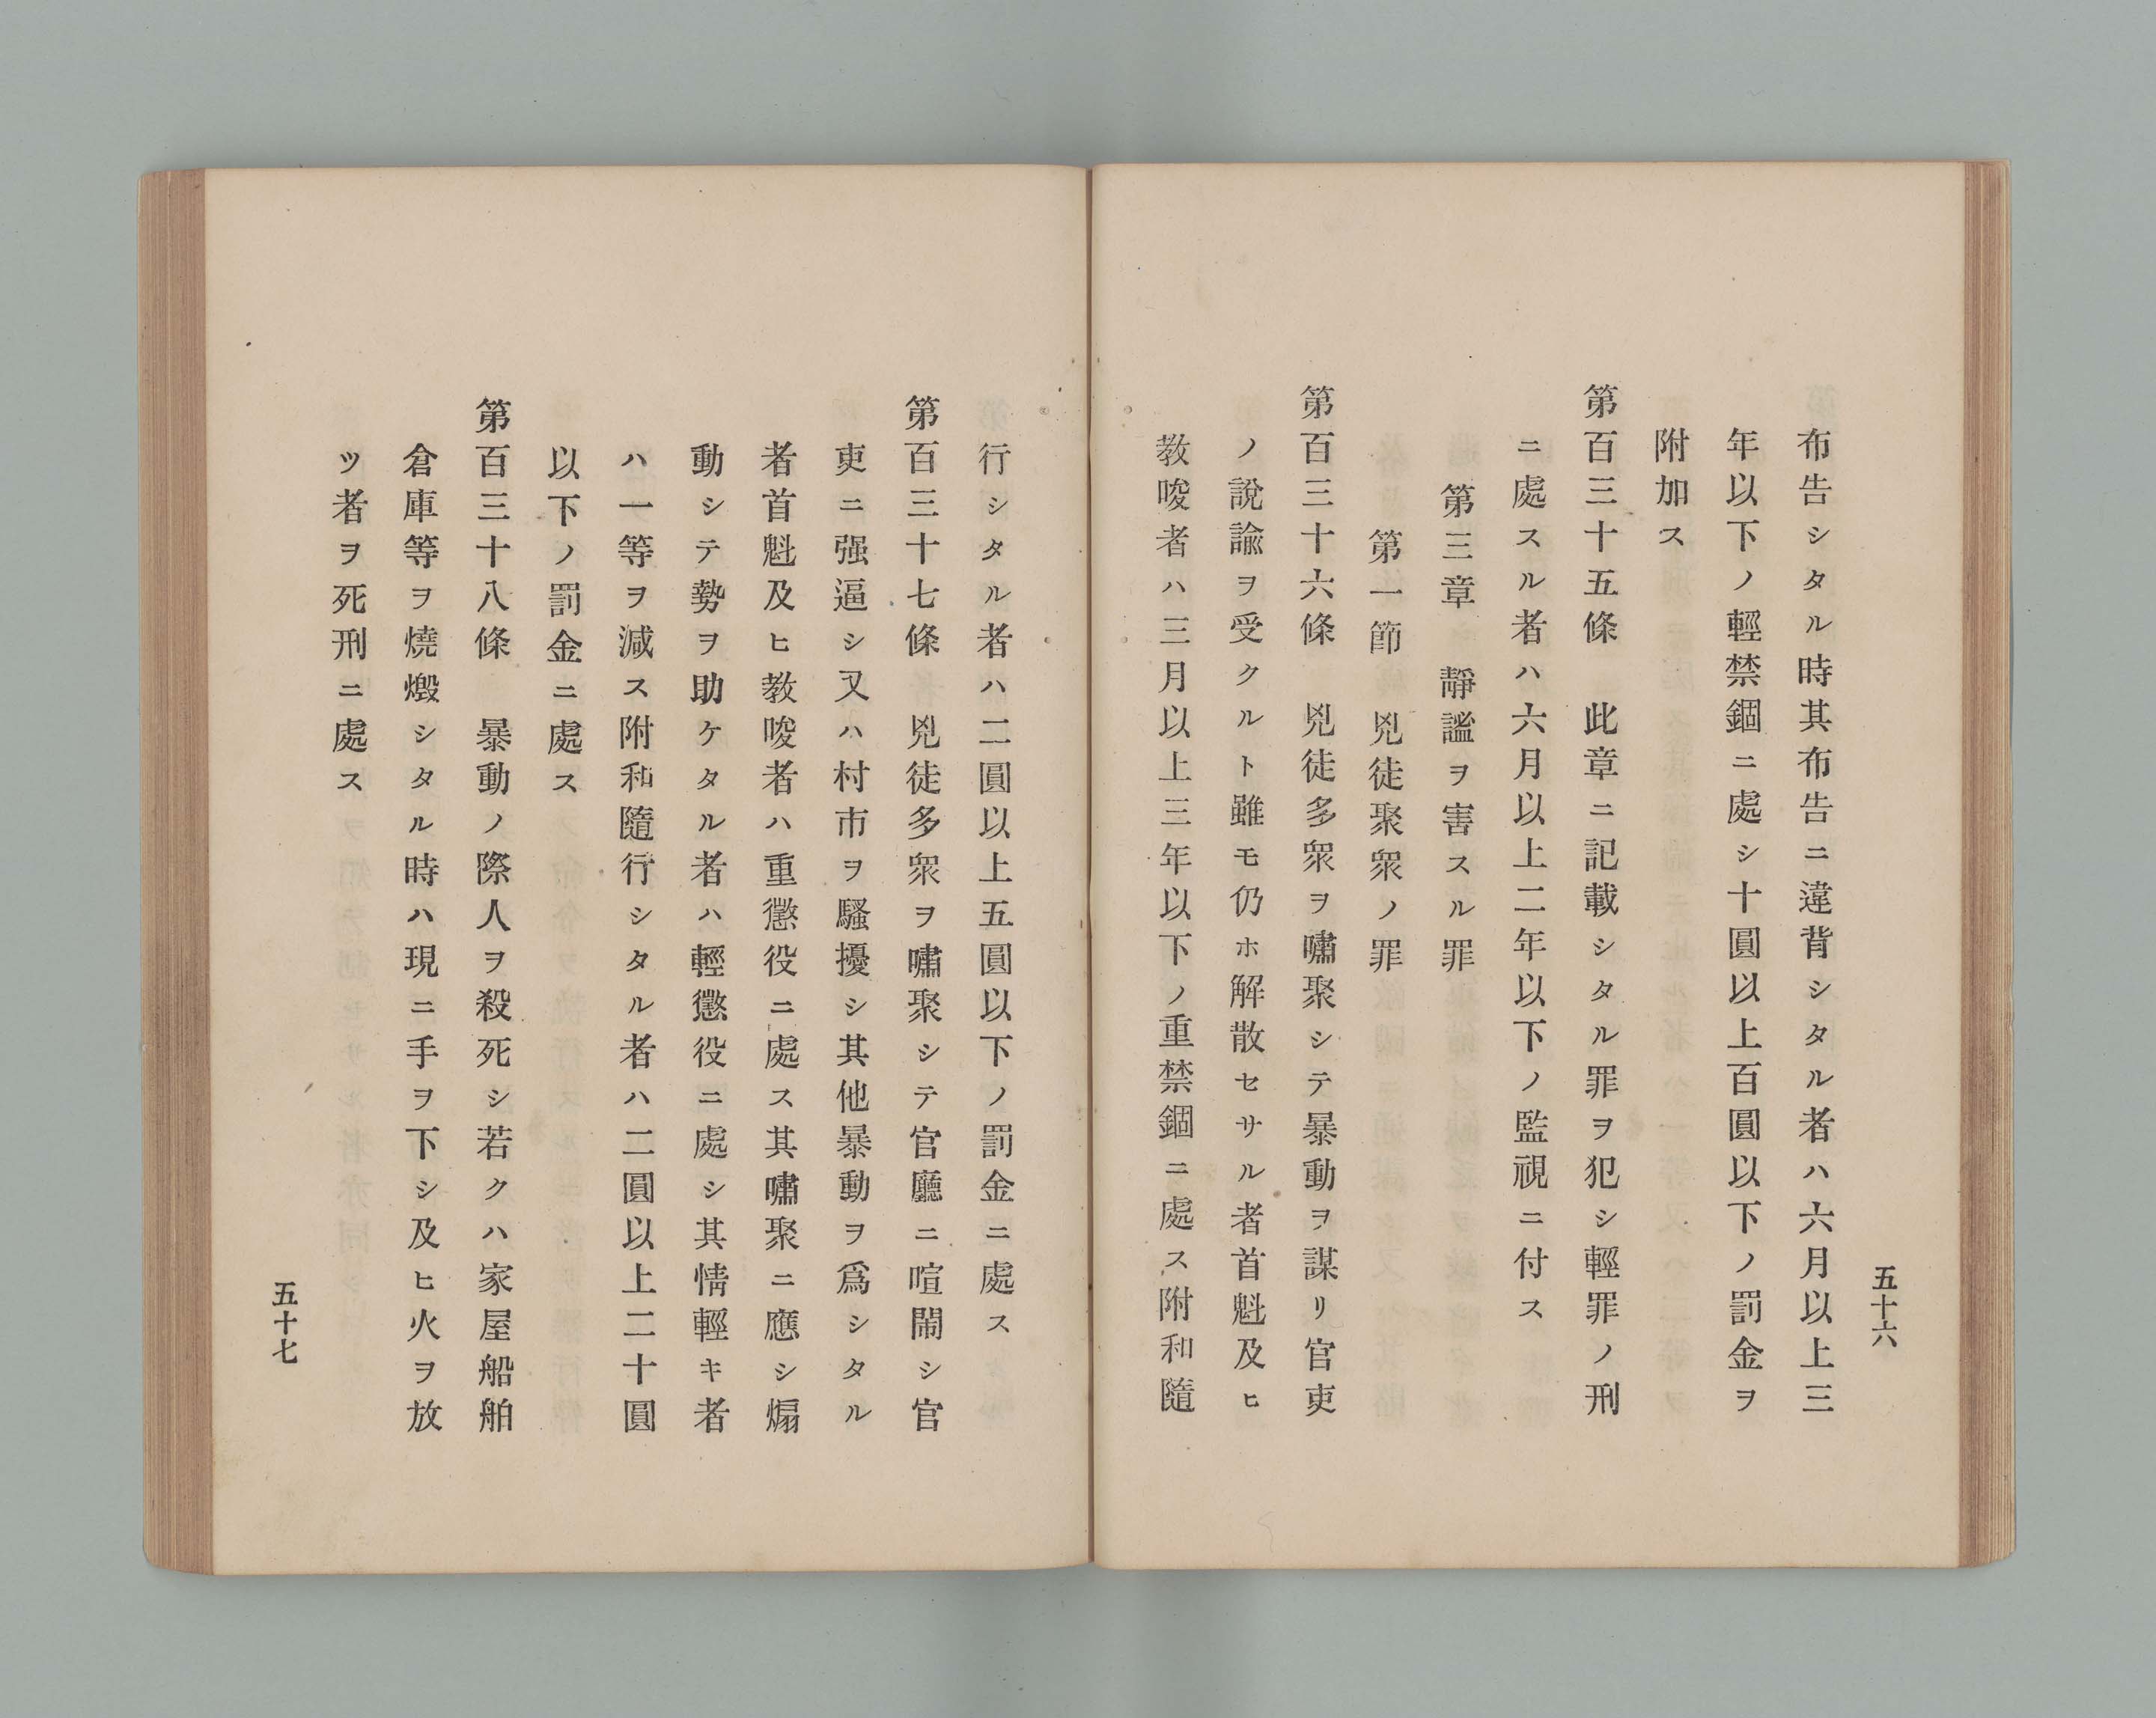 五十六
布告シタル時其布告ニ違背シタル者ハ六月以上三
年以下ノ輕禁錮ニ處シ十圓以上百圓以下ノ罰金ヲ
附加ス
第百三十五條　此章ニ記載シタル罪ヲ犯シ輕罪ノ刑
ニ處スル者ハ六月以上二年以下ノ監視ニ付ス
第三章　靜謐ヲ害スル罪
第一節　兇徒聚衆ノ罪
第百三十六條　兇徒多衆ヲ嘯聚シテ暴動ヲ謀リ官吏
ノ說諭ヲ受クルト雖モ仍ホ解散セサル者首魁及ヒ
教唆者ハ三月以上三年以下ノ重禁錮ニ處ス附和隨
行シタル者ハ二圓以上五圓以下ノ罰金ニ處ス
第百三十七條　兇徒多衆ヲ嘯聚シテ官廳ニ喧閙シ官
吏ニ强逼シ又ハ村市ヲ騷擾シ其他暴動ヲ爲シタル
者首魁及ヒ教唆者ハ重懲役ニ處ス其嘯聚ニ應シ煽
動シテ勢ヲ助ケタル者ハ輕懲役ニ處シ其情輕キ者
ハ一等ヲ減ス附和隨行シタル者ハ二圓以上二十圓
以下ノ罰金ニ處ス
第百三十八條　暴動ノ際人ヲ殺死シ若クハ家屋船舶
倉庫等ヲ燒燬シタル時ハ現ニ手ヲ下シ及ヒ火ヲ放
ツ者ヲ死刑ニ處ス
五十七